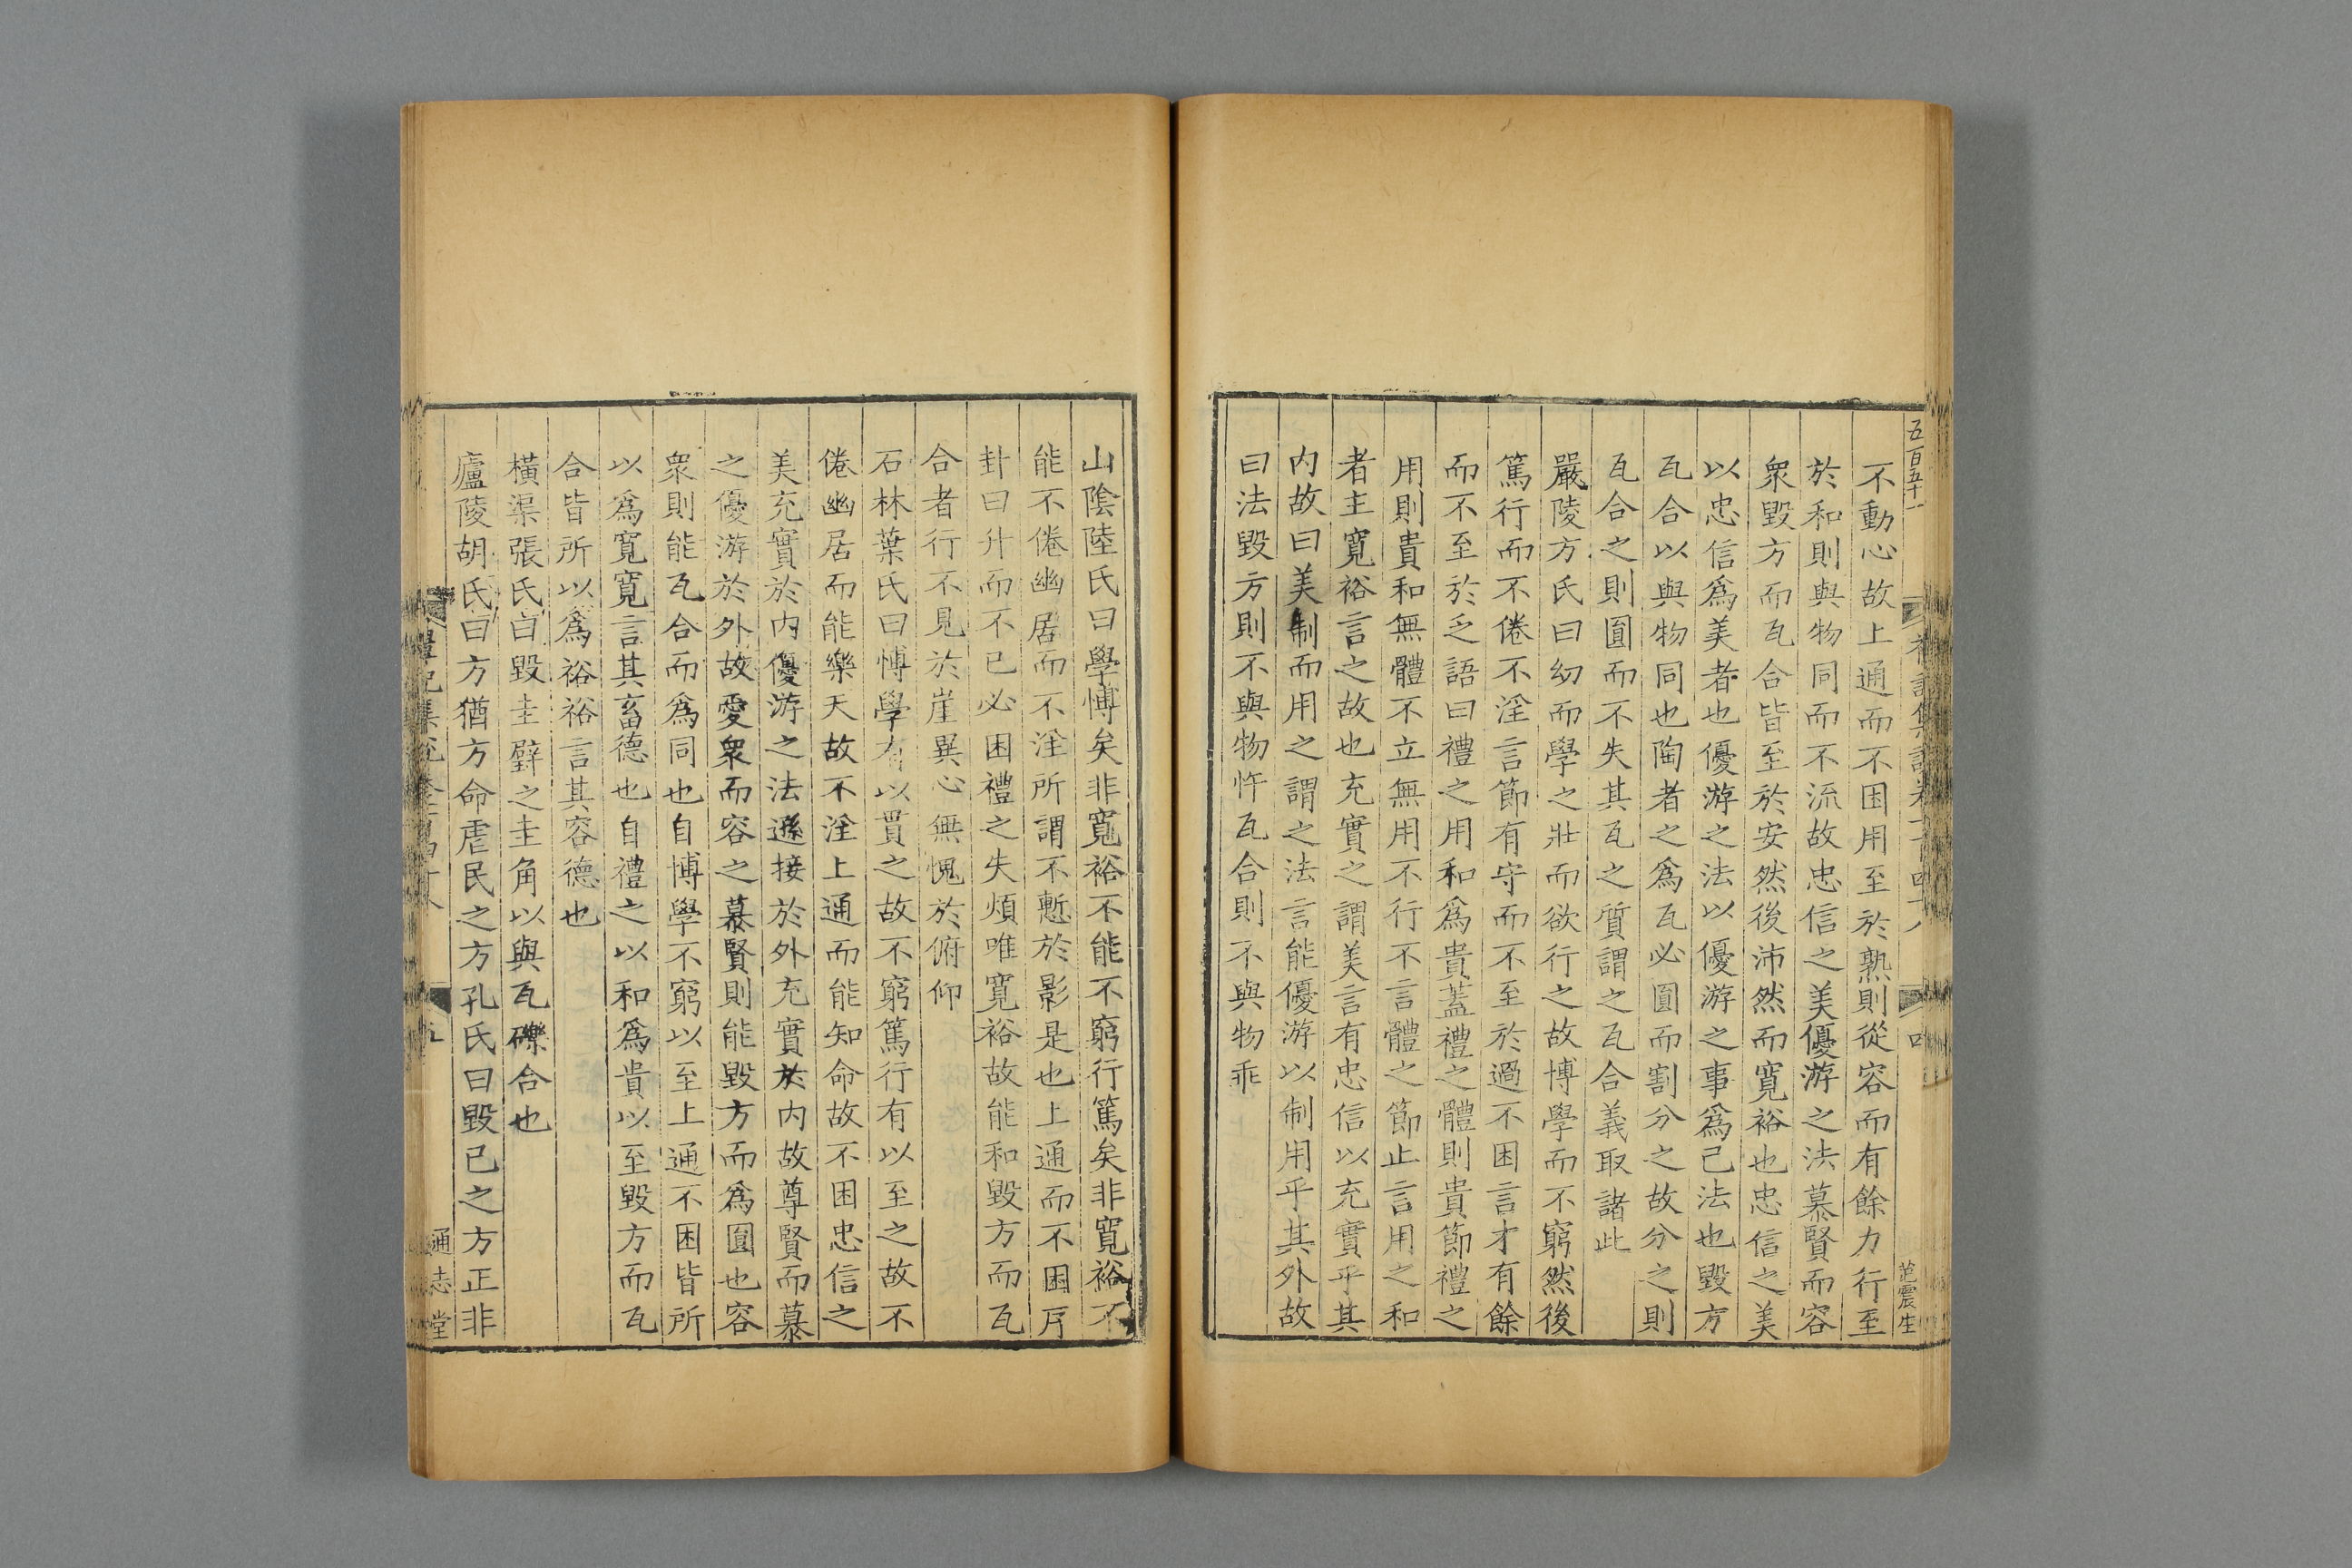 五百五十一
禮記集說卷一百四十八
四
范震生
不動心故上通而不困用至於熟則從容而有餘力行至
於和則與物同而不流故忠信之美優游之法慕賢而容
衆毀方而瓦合皆至於安然後沛然而寬裕也忠信之美
以忠信爲美者也優游之法以優游之事爲己法也毀方
瓦合以與物同也陶者之爲瓦必圓而割分之故分之則
瓦合之則圓而不失其瓦之質謂之瓦合義取諸此
嚴陵方氏曰幼而學之壯而欲行之故博學而不窮然後
篤行而不倦不淫言節有守而不至於過不困言才有餘
而不至於乏語曰禮之用和爲貴蓋禮之體則貴節禮之
用則貴和無體不立無用不行不言體之節止言用之和
者主寬裕言之故也充實之謂美言有忠信以充實乎其
内故曰美制而用之謂之法言能優游以制用乎其外故
曰法毀方則不與物忤瓦合則不與物乖
山陰陸氏曰學博矣非寬裕不能不窮行篤矣非寬裕不
能不倦幽居而不淫所謂不慙於影是也上通而不困厈
卦曰升而不已必困禮之失煩唯寬裕故能和毀方而瓦
合者行不見於崖異心無愧於俯仰
石林葉氏曰博學有以貫之故不窮篤行有以至之故不
倦幽居而能樂天故不淫上通而能知命故不困忠信之
美充實於内優游之法遜接於外充實於内故尊賢而慕
之優游於外故愛衆而容之慕賢則能毀方而爲圓也容
衆則能瓦合而爲同也自博學不窮以至上通不困皆所
以爲寬寬言其畜德也自禮之以和爲貴以至毀方而瓦
合皆所以爲裕裕言其容德也
橫渠張氏曰毀圭璧之圭角以與瓦礫合也
廬陵胡氏曰方猶方命虐民之方孔氏曰毀己之方正非
禮記集說卷一百四十八
五
通志堂